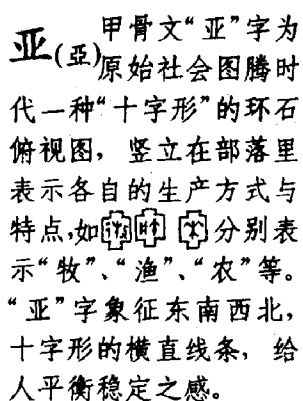 亚(亞)甲骨文“亚”字为
原始社会图腾时
代一种“十字形”的环石
俯视图，竖立在部落里
表示各自的生产方式与
特点,如分别表
示“牧”、“渔”、“农”等。
“亚”字象征东南西北,
十字形的横直线条，给
人平衡稳定之感。